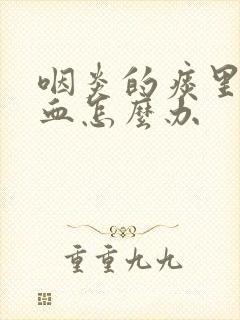 咽炎的痰里
血怎麽办
重重九九